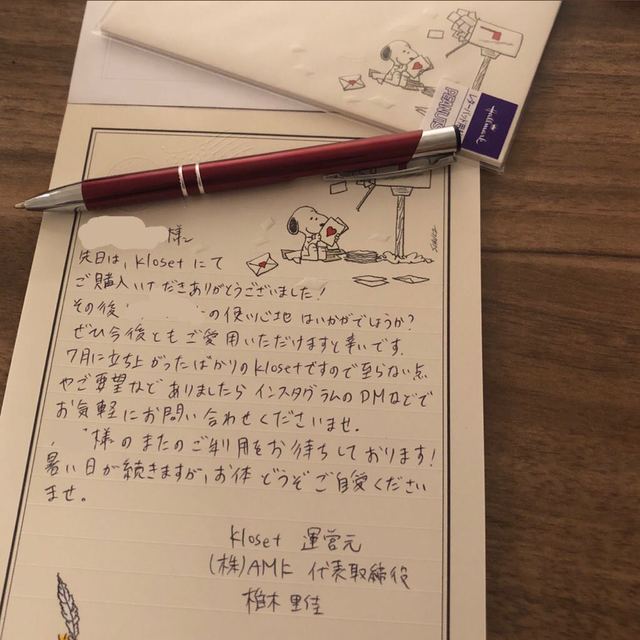 Hallmark
PEANUTS
様
先日は、Kloset にて
ご購入いただきありがとうございました!
その後 の使い心地 はいかがでしょうか?
ぜひ今後ともご愛用いただけますと幸いです.
7月に立ち上がったばかりのKlosetですので至らない点
やご要望など ありましたら インスタグラムのDMなどで
お気軽にお問い合わせくださいませ.
様のまたのご利用をお待ちしております!
暑い日が続きますが、お体どうぞご自愛ください
ませ。
Kloset 運営元
(株)AMF 代表取締役
椎木里佳